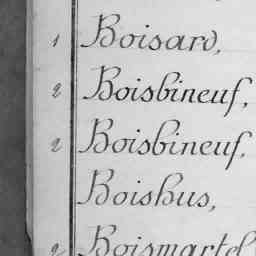 1 Boisard,
2 Boisbineuf,
2 Boisbineuf,
Boishus,
2 Boismartel